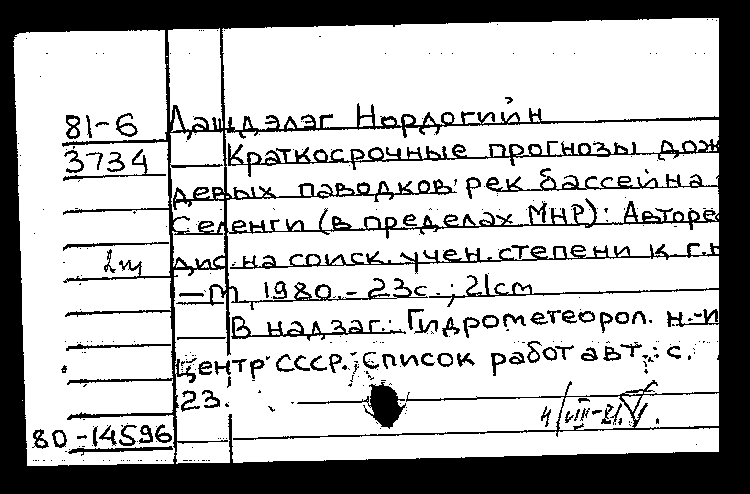 81-6 Дашдэлэг Нордогийн
3734 Краткосрочные прогнозы дож
девых паводков рек бассейна
Селенги (в пределах МНР): Авторе
дис. на соиск. учен. степени к.г.
—М, 1980.-23с.; 21см
В надзаг.: Гидрометеорол. н.-и
центр СССР. Список работ авт.: с.
23.
80-14596